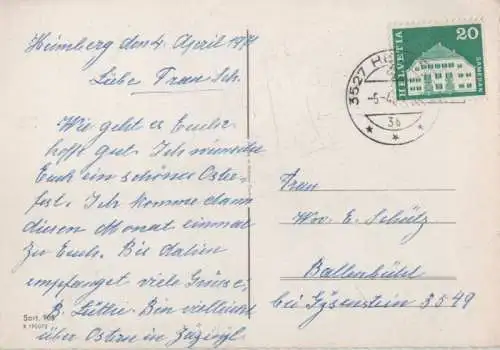 Heimberg den 4. April 1971
Liebe Frau Sch.
Wie geht es Euch
hoffe gut. Ich wünsche
Euch ein schönes Oster-
fest. Ich komme dann
diesen Monat einmal
zu Euch. Bis dahin
empfanget viele Grüsse,
B. Lüthi. Bin vielleicht
über Ostern in Zäziwil
Sort. 105
3527 H
-5-4
3a
HELVETIA
20
SAMEDAN
Frau
Ww. E. Schütz
Ballenbühl
bei Gysenstein 3549